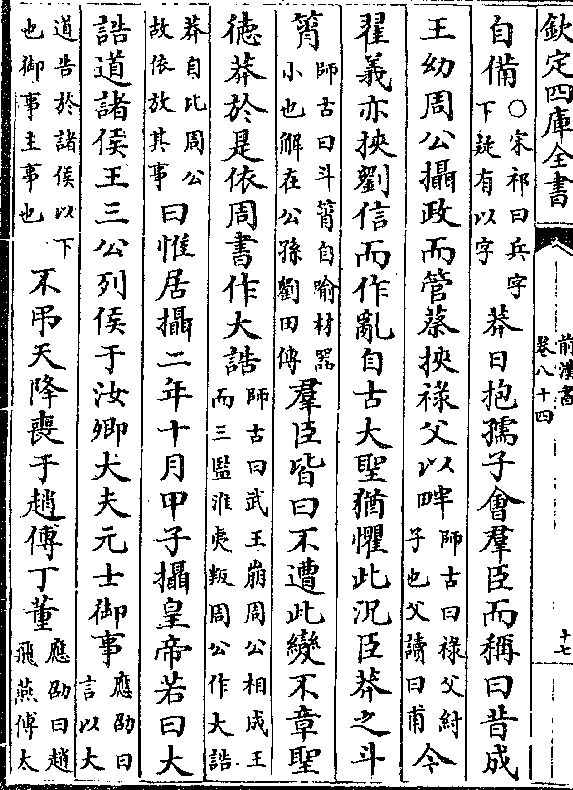 欽定四庫全書
前漢書
卷八十四
十七
自備
○宋祁曰兵字
下疑有以字
莽日抱孺子會羣臣而稱曰昔成
王幼周公攝政而管蔡挾祿父以畔
師古曰祿父紂
子也父讀曰甫
今
翟義亦挾劉信而作亂自古大聖猶懼此況臣莽之斗
筲
師古曰斗筲自喻材器
小也解在公孫劉田傳
羣臣皆曰不遭此變不章聖
德莽於是依周書作大誥
師古曰武王崩周公相成王
而三監淮夷叛周公作大誥
莽自比周公
故依放其事
曰惟居攝二年十月甲子攝皇帝若曰大
誥道諸侯王三公列侯于汝卿大夫元士御事
應劭曰
言以大
道告於諸侯以下
也御事主事也
不弔天降喪于趙傅丁董
應劭曰趙
飛燕傅太